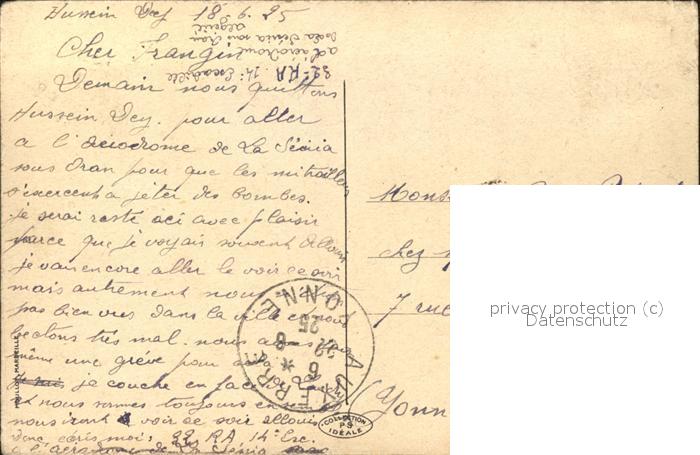 Hussein Dey 18.6.25
Cher Frangin
32e RA 14e Escadrille
à l'aérodrome
de la Sénia sous Oran
Algérie
Demain nous quittons
Hussein Dey. pour aller
a l'aérodrome de La Sénia
sous Oran pour que les mitrailleurs
s'exercent a jeter des bombes.
je serai resté ici avec plaisir
parce que je voyais souvent
je vais encore aller le voir ce soir
mais autrement nous
pas bien vus dans la ville et nous
bectons très mal. nous
même une grève pour
je couche en face
et nous sommes toujours
nous irons voir ce soir
donc écris moi: RA, 14e Esc.
a l'aérodrome de La Sénia
AUXERRE
YONNE
25
COLLECTION
PS
IDÉALE
MARSEILLE
chez
7 rue
(Yonn
privacy protection (c)
Datenschutz